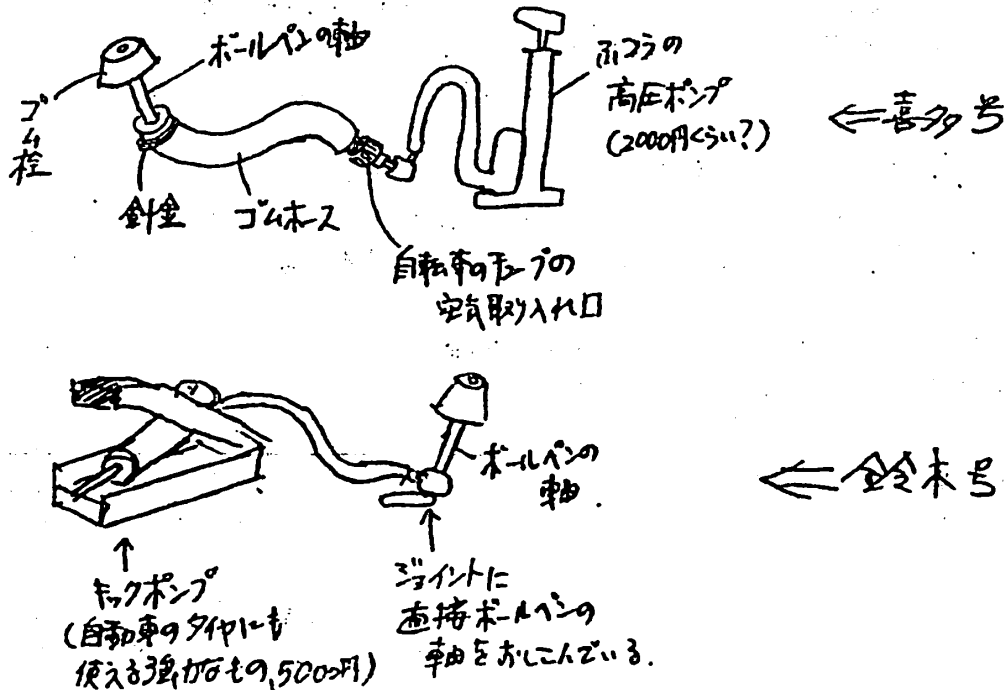 ボールペンの軸
ゴム栓
針金
ゴムホース
ふつうの
高圧ポンプ
(2000円くらい?)
⇐喜多号
自転車のチューブの
空気取り入れ口
ボールペンの
軸.
⇐鈴木号
↑
キックポンプ
(自動車のタイヤにも
使える強力なもの,5000円)
↑
ジョイントに
直接ボールペンの
軸をおしこんでいる.